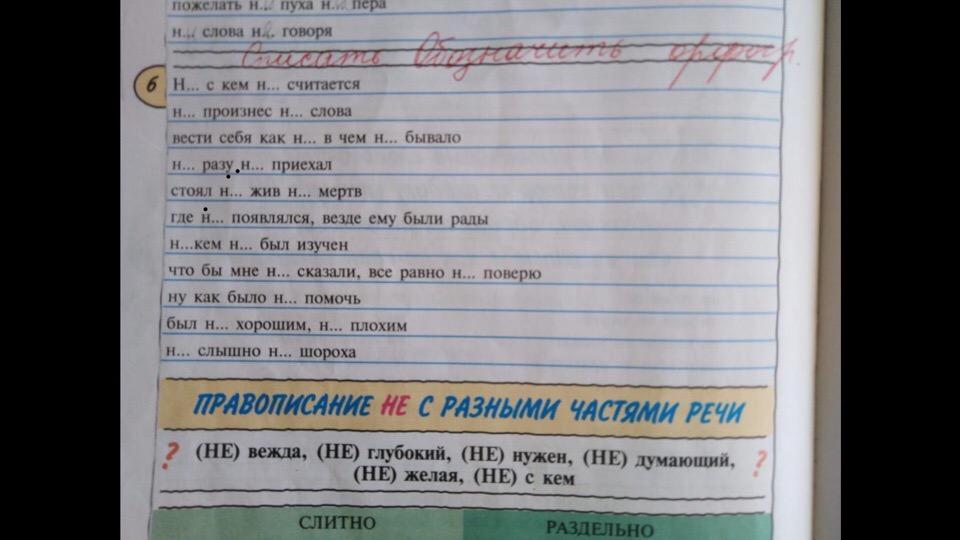 пожелать н... пуха н... пера
н... слова н... говоря
Списать Обозначить орфогр.
6
Н... с кем н... считается
н... произнес н... слова
вести себя как н... в чем н... бывало
н... разу н... приехал
стоял н... жив н... мертв
где н... появлялся, везде ему были рады
н...кем н... был изучен
что бы мне н... сказали, все равно н... поверю
ну как было н... помочь
был н... хорошим, н... плохим
н... слышно н... шороха
ПРАВОПИСАНИЕ НЕ С РАЗНЫМИ ЧАСТЯМИ РЕЧИ
? (НЕ) вежда, (НЕ) глубокий, (НЕ) нужен, (НЕ) думающий, ?
(НЕ) желая, (НЕ) с кем
СЛИТНО РАЗДЕЛЬНО